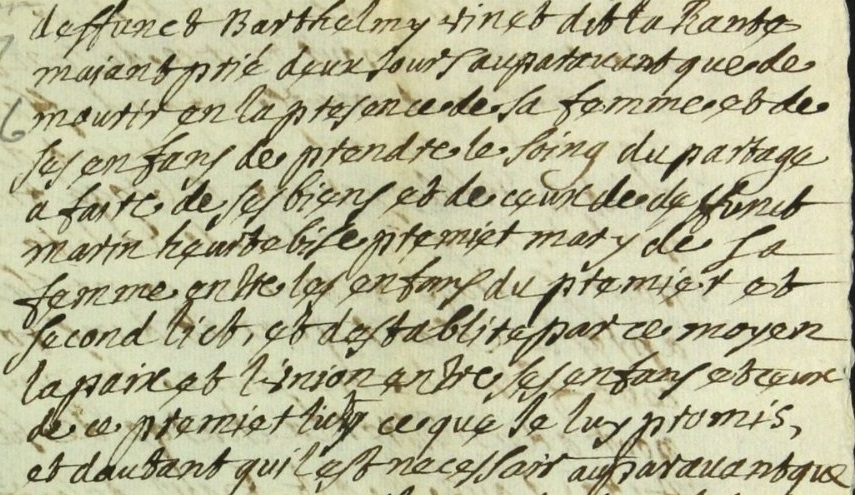 deffunct Barthelmy vinet dit la Rante
maiant prié deux Jours auparavant que de
mourir en la presence de sa femme et de
ses enfans de prendre le soing du partage
a faire de ses biens et de ceux de deffunct
marin heurtebise premier mary de sa
femme entre les enfans du premier et
second lict, et destablir par ce moyen
la paix et l'union entre ses enfans et ceux
de ce premier lict ce que Je luy promis,
et dautant quil est necessair auparavant que